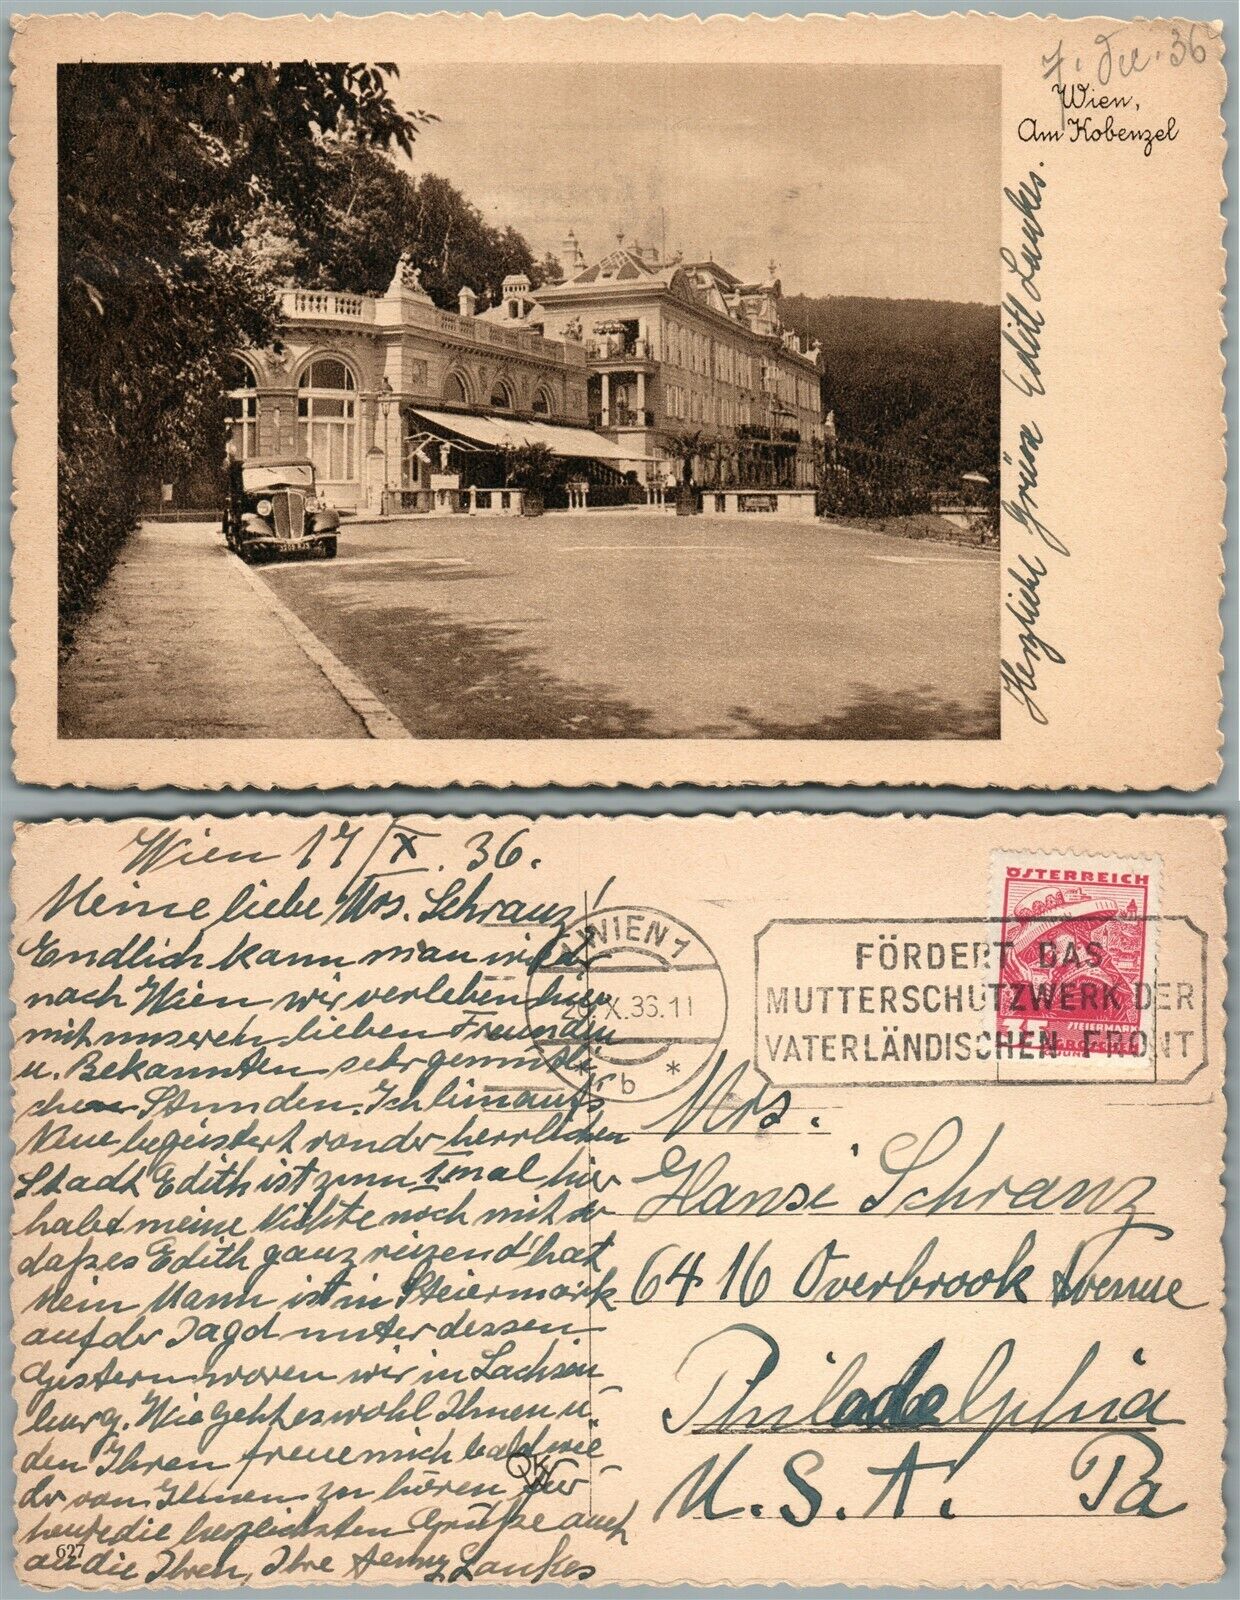 7. Dec. 36
Wien,
Am Kobenzel
Herzliche Grüsse Edith Laukes.
Wien 17/X. 36.
Meine liebe Mrs. Schranz!
Endlich kann man wieder
nach Wien wir verleben hier
mit unseren lieben Freunden
u. Bekannten sehr gemütli-
chen Stunden. Ich bin aufs
Neue begeistert von der herrlichen
Stadt Edith ist zum 1. mal hier
habe meine Nichte noch mit so
daß es Edith ganz reizend hat
Mein Mann ist in Steiermark
auf der Jagd unterdessen.
Gestern waren wir in Lachsen
burg. Wie geht es wohl Ihnen u.
den Ihren freue mich bald wie-
der von Ihnen zu hören Für
heute die herzlichsten Grüße auch
an die Ihren, Ihre Jenny Laukes
627
WIEN 1
20.X.36.11
* b *
FÖRDERT DAS
MUTTERSCHUTZWERK DER
VATERLÄNDISCHEN FRONT
ÖSTERREICH
STEIERMARK
GROSCHEN
Mrs.
Hansi Schranz
6416 Overbrook Avenue
Philadelphia
U.S.A. Pa